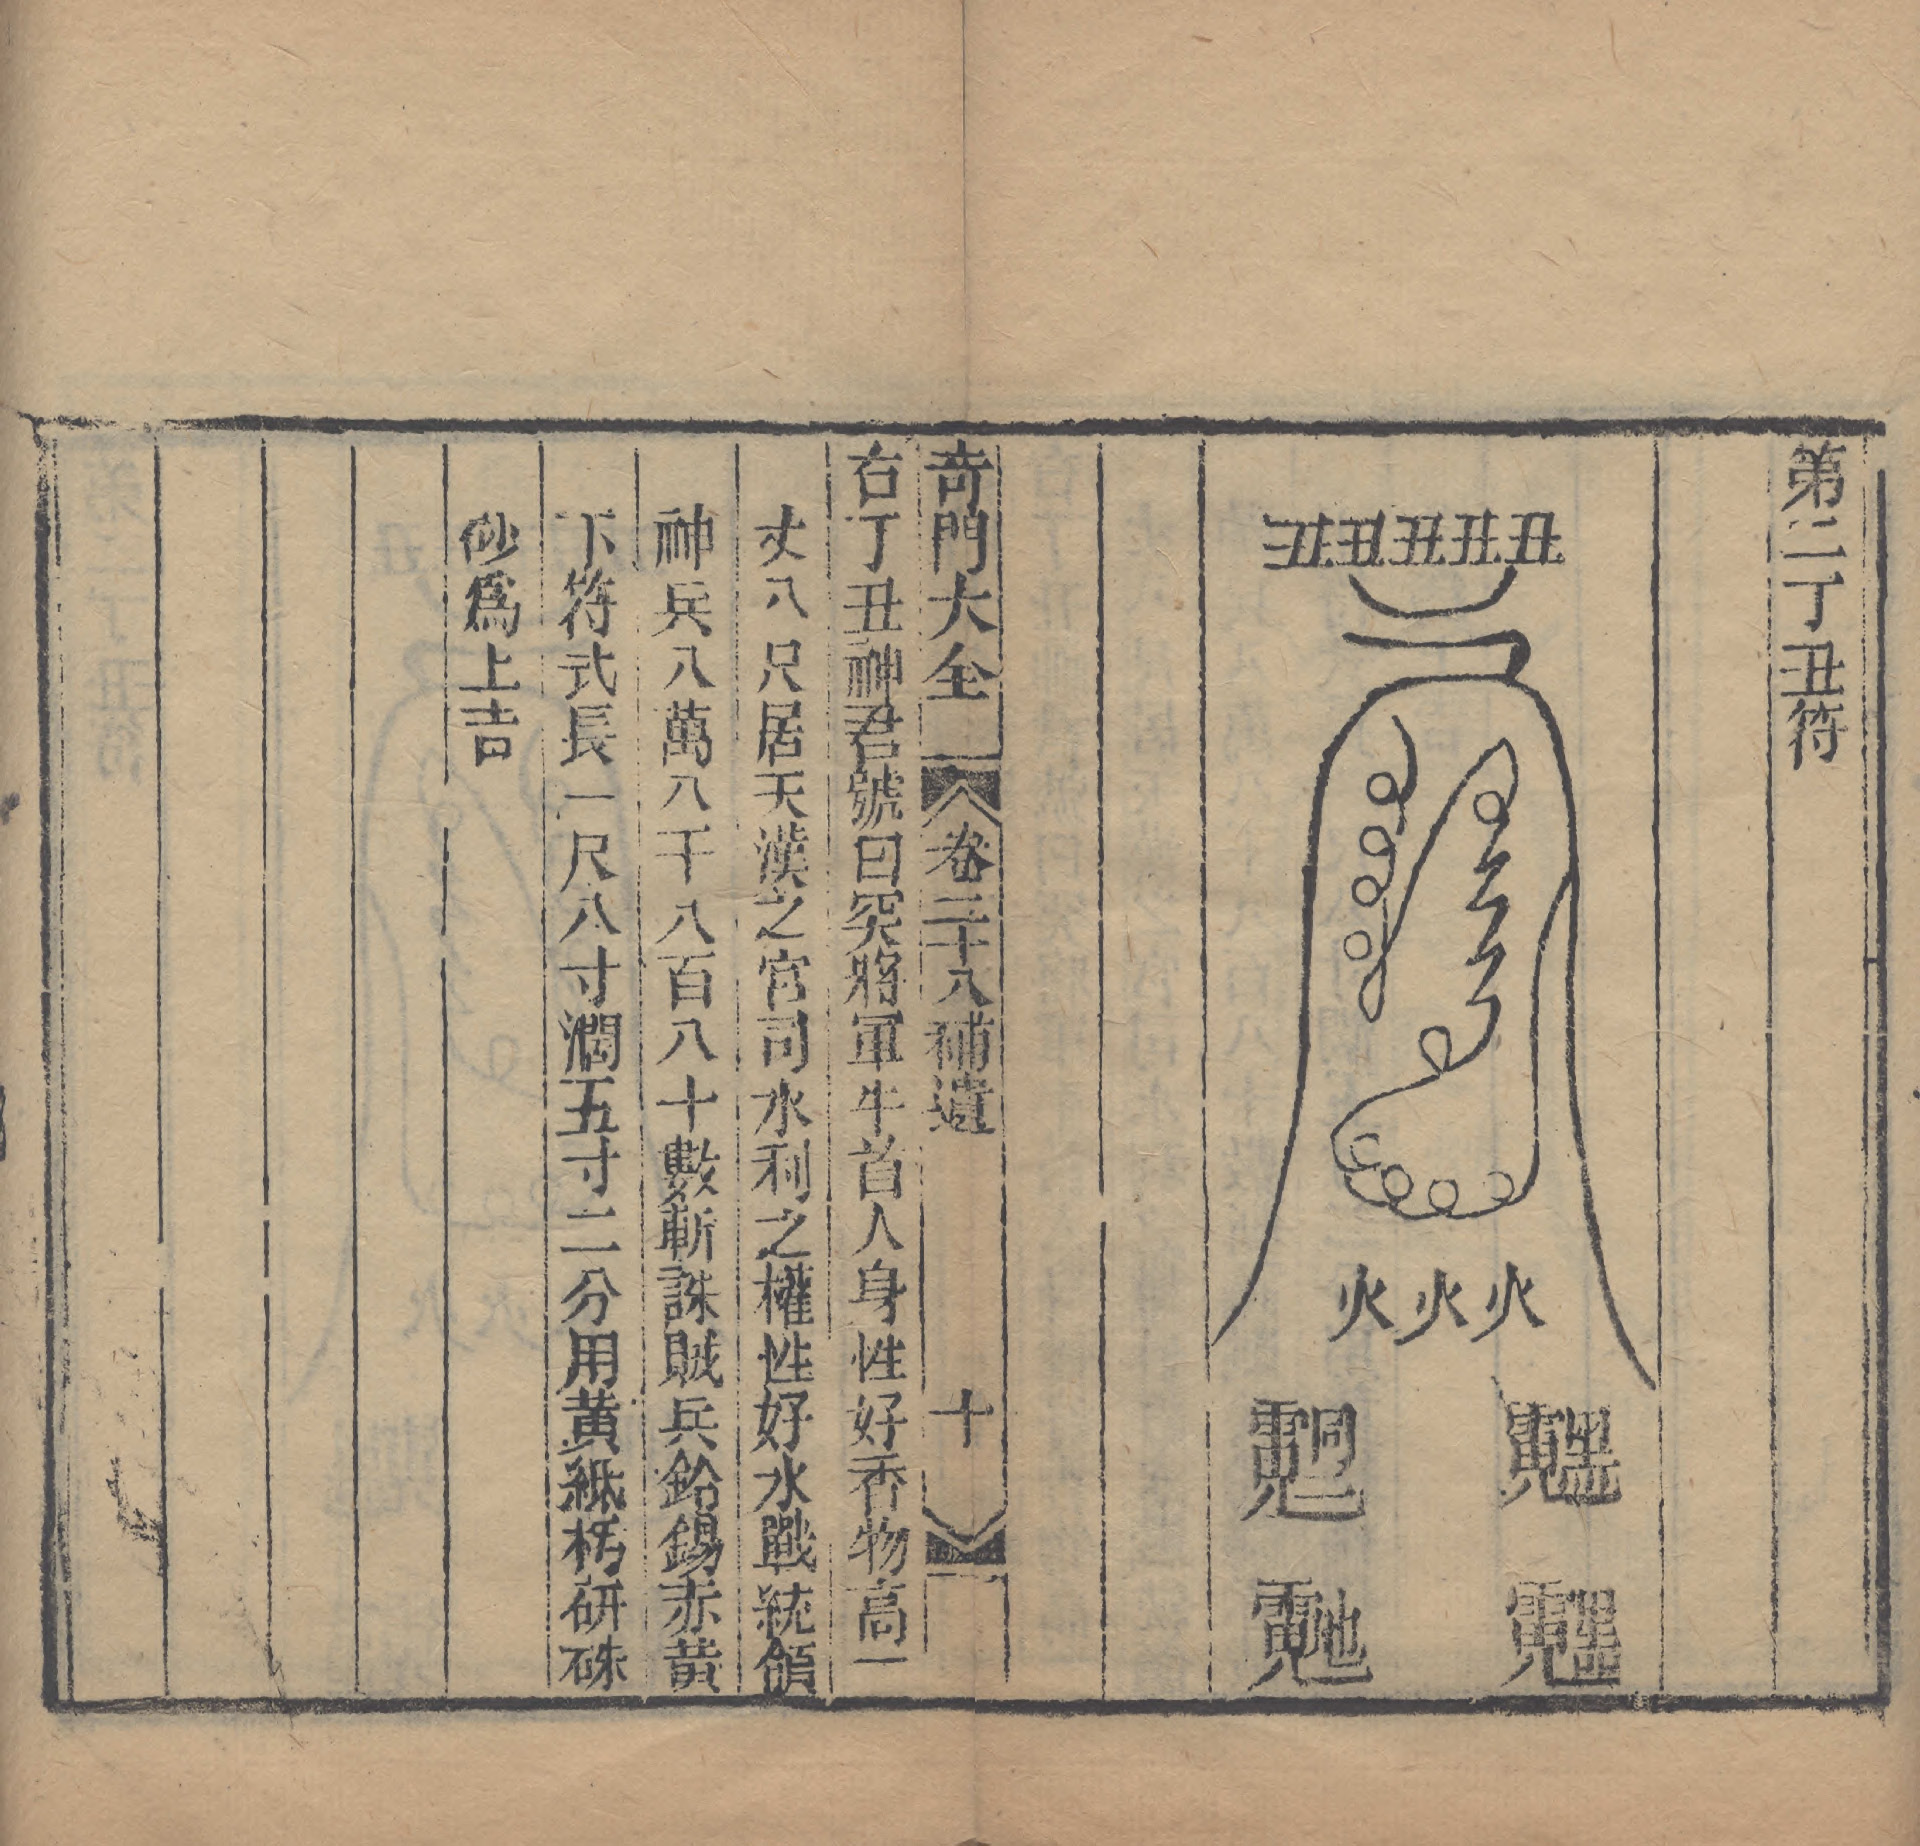 第二丁丑符
丑丑丑丑丑
火火火
奇門大全 卷二十八補遺 十
右丁丑神君號曰突將軍牛首人身性好香物高一
丈八尺居天漢之宮司水利之權性好水戰統領
神兵八萬八千八百八十數斬誅賊兵鈴錫赤黃
下符式長一尺八寸濶五寸二分用黃紙研硃
砂爲上吉